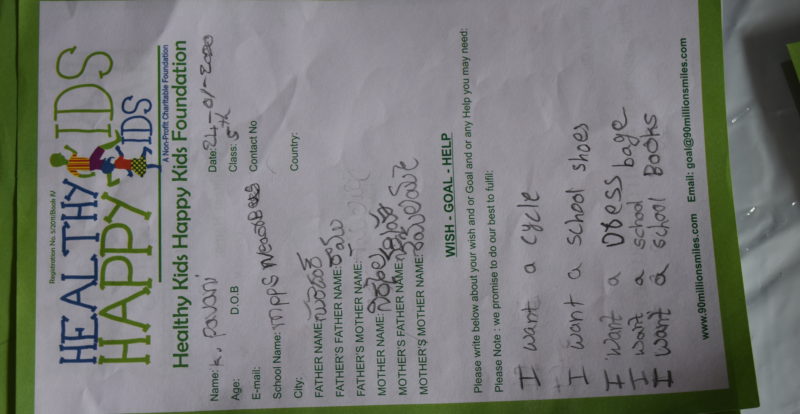 Registration No. 5/2011/Book IV
HEALTHY KIDS
HAPPY KIDS
A Non-Profit Charitable Foundation
Healthy Kids Happy Kids Foundation
Name: K. Pavani Date: 24-01-2020
Age: D.O.B Class: 5th
E-mail: Contact No
School Name: MPPS
City: Country:
FATHER NAME:
FATHER'S FATHER NAME: రాము
FATHER'S MOTHER NAME:
MOTHER NAME:
MOTHER'S FATHER NAME:
MOTHER'S MOTHER NAME:
WISH - GOAL - HELP
Please write below about your wish and or Goal and or any Help you may need:
Please Note : we promise to do our best to fulfil:
I want a cycle
I want a school shoes
I want a Dress
I want a school bage
I want a school BOOKS
www.90millionsmiles.com Email: goal@90millionsmiles.com